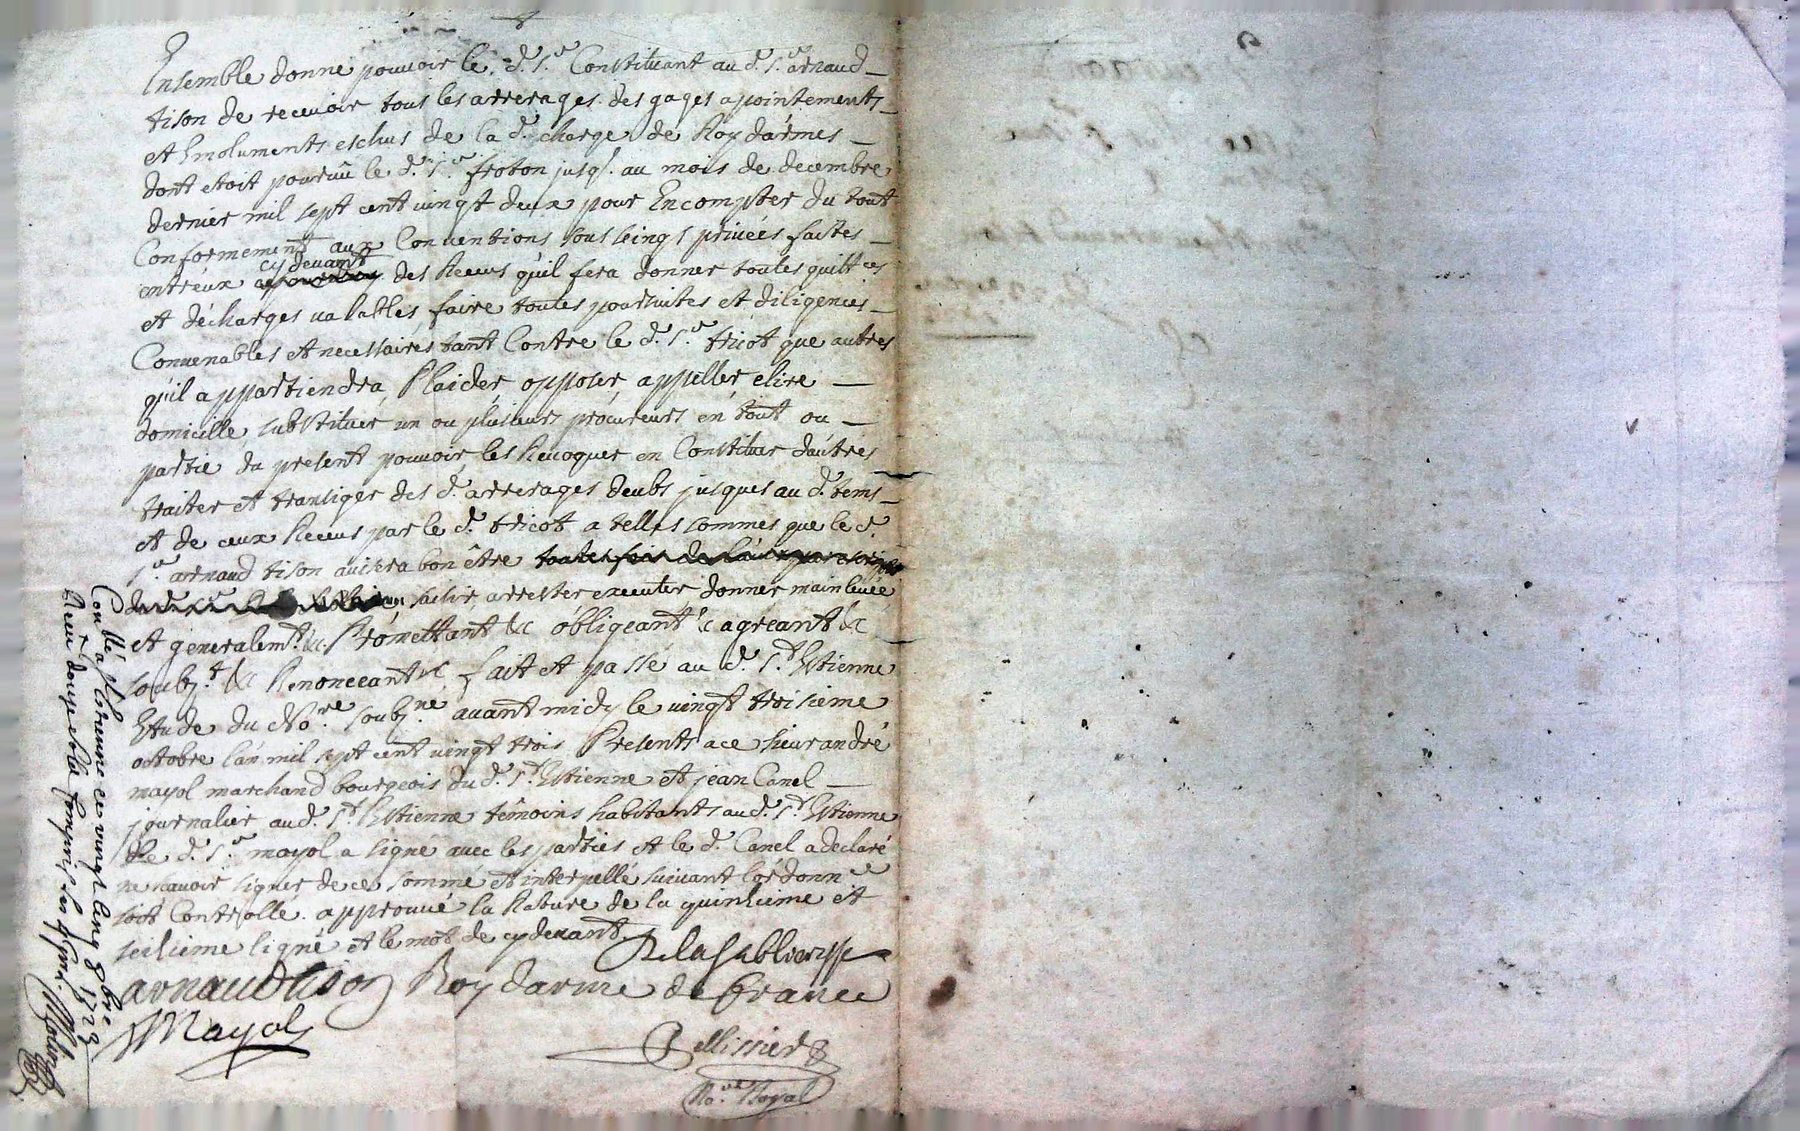 Ensemble donné pouvoir le d. Sr. Constituant au d. Sr. arnaud
tison de recevoir tous les arrerages des gages apointements
et Emoluments eschus de la d. charge de Roy darmes
dont etoit pourvû le d. Sr. froton jusq. au mois de decembre
dernier mil sept cent vingt deux pour Encompter du tout
Conformement aux Conventions sous seings privées faites
cy devant
entreux des Receus qu'il fera donner toutes quittces
et décharges valables faire toutes poursuites et diligences
Convenables et necessaires tant Contre le d. Sr. tricot que autres
qu'il appartiendra, Plaider, opposer, appeller elire
domicille, substituer un ou plusieurs procureurs en tout ou
partie du present pouvoir les Revoquer en Constituer dautres
traiter et transiger des d. arrerages deubs jusques au d. tems
et de ceux Receus par le d. tricot a telles sommes que le d.
Sr. arnaud tison avisera bon être
saisir arrester executer donner mainlevée
et generalemt. &c Promettant &c obligeant &c agreant &c
soubz.t &c Renonceant &c fait et passé au d. St. Estienne
Etude du Nore. soubz.né avant midy le vingt troisieme
octobre lan mil sept cent vingt trois Presents a ce sieur andré
mayol marchand bourgeois du d. St. Estienne et jean Canel
journalier au d. St. Estienne temoins habitants au d. St. Estienne
le d. Sr. mayol a signé avec les parties et le d. Canel a declaré
ne scavoir signer de ce sommé et interpellé suivant lordonnce
soit Controllé. approuvé la Rature de la quinsieme et
seisieme ligne et le mot de cy devant
De la Sabliere
arnaud tison Roy darme de france
Mayol
Pellissier
No.re Royal
Conllé a St Estienne ce vingt cinq 8bre 1723
Receu douze sols